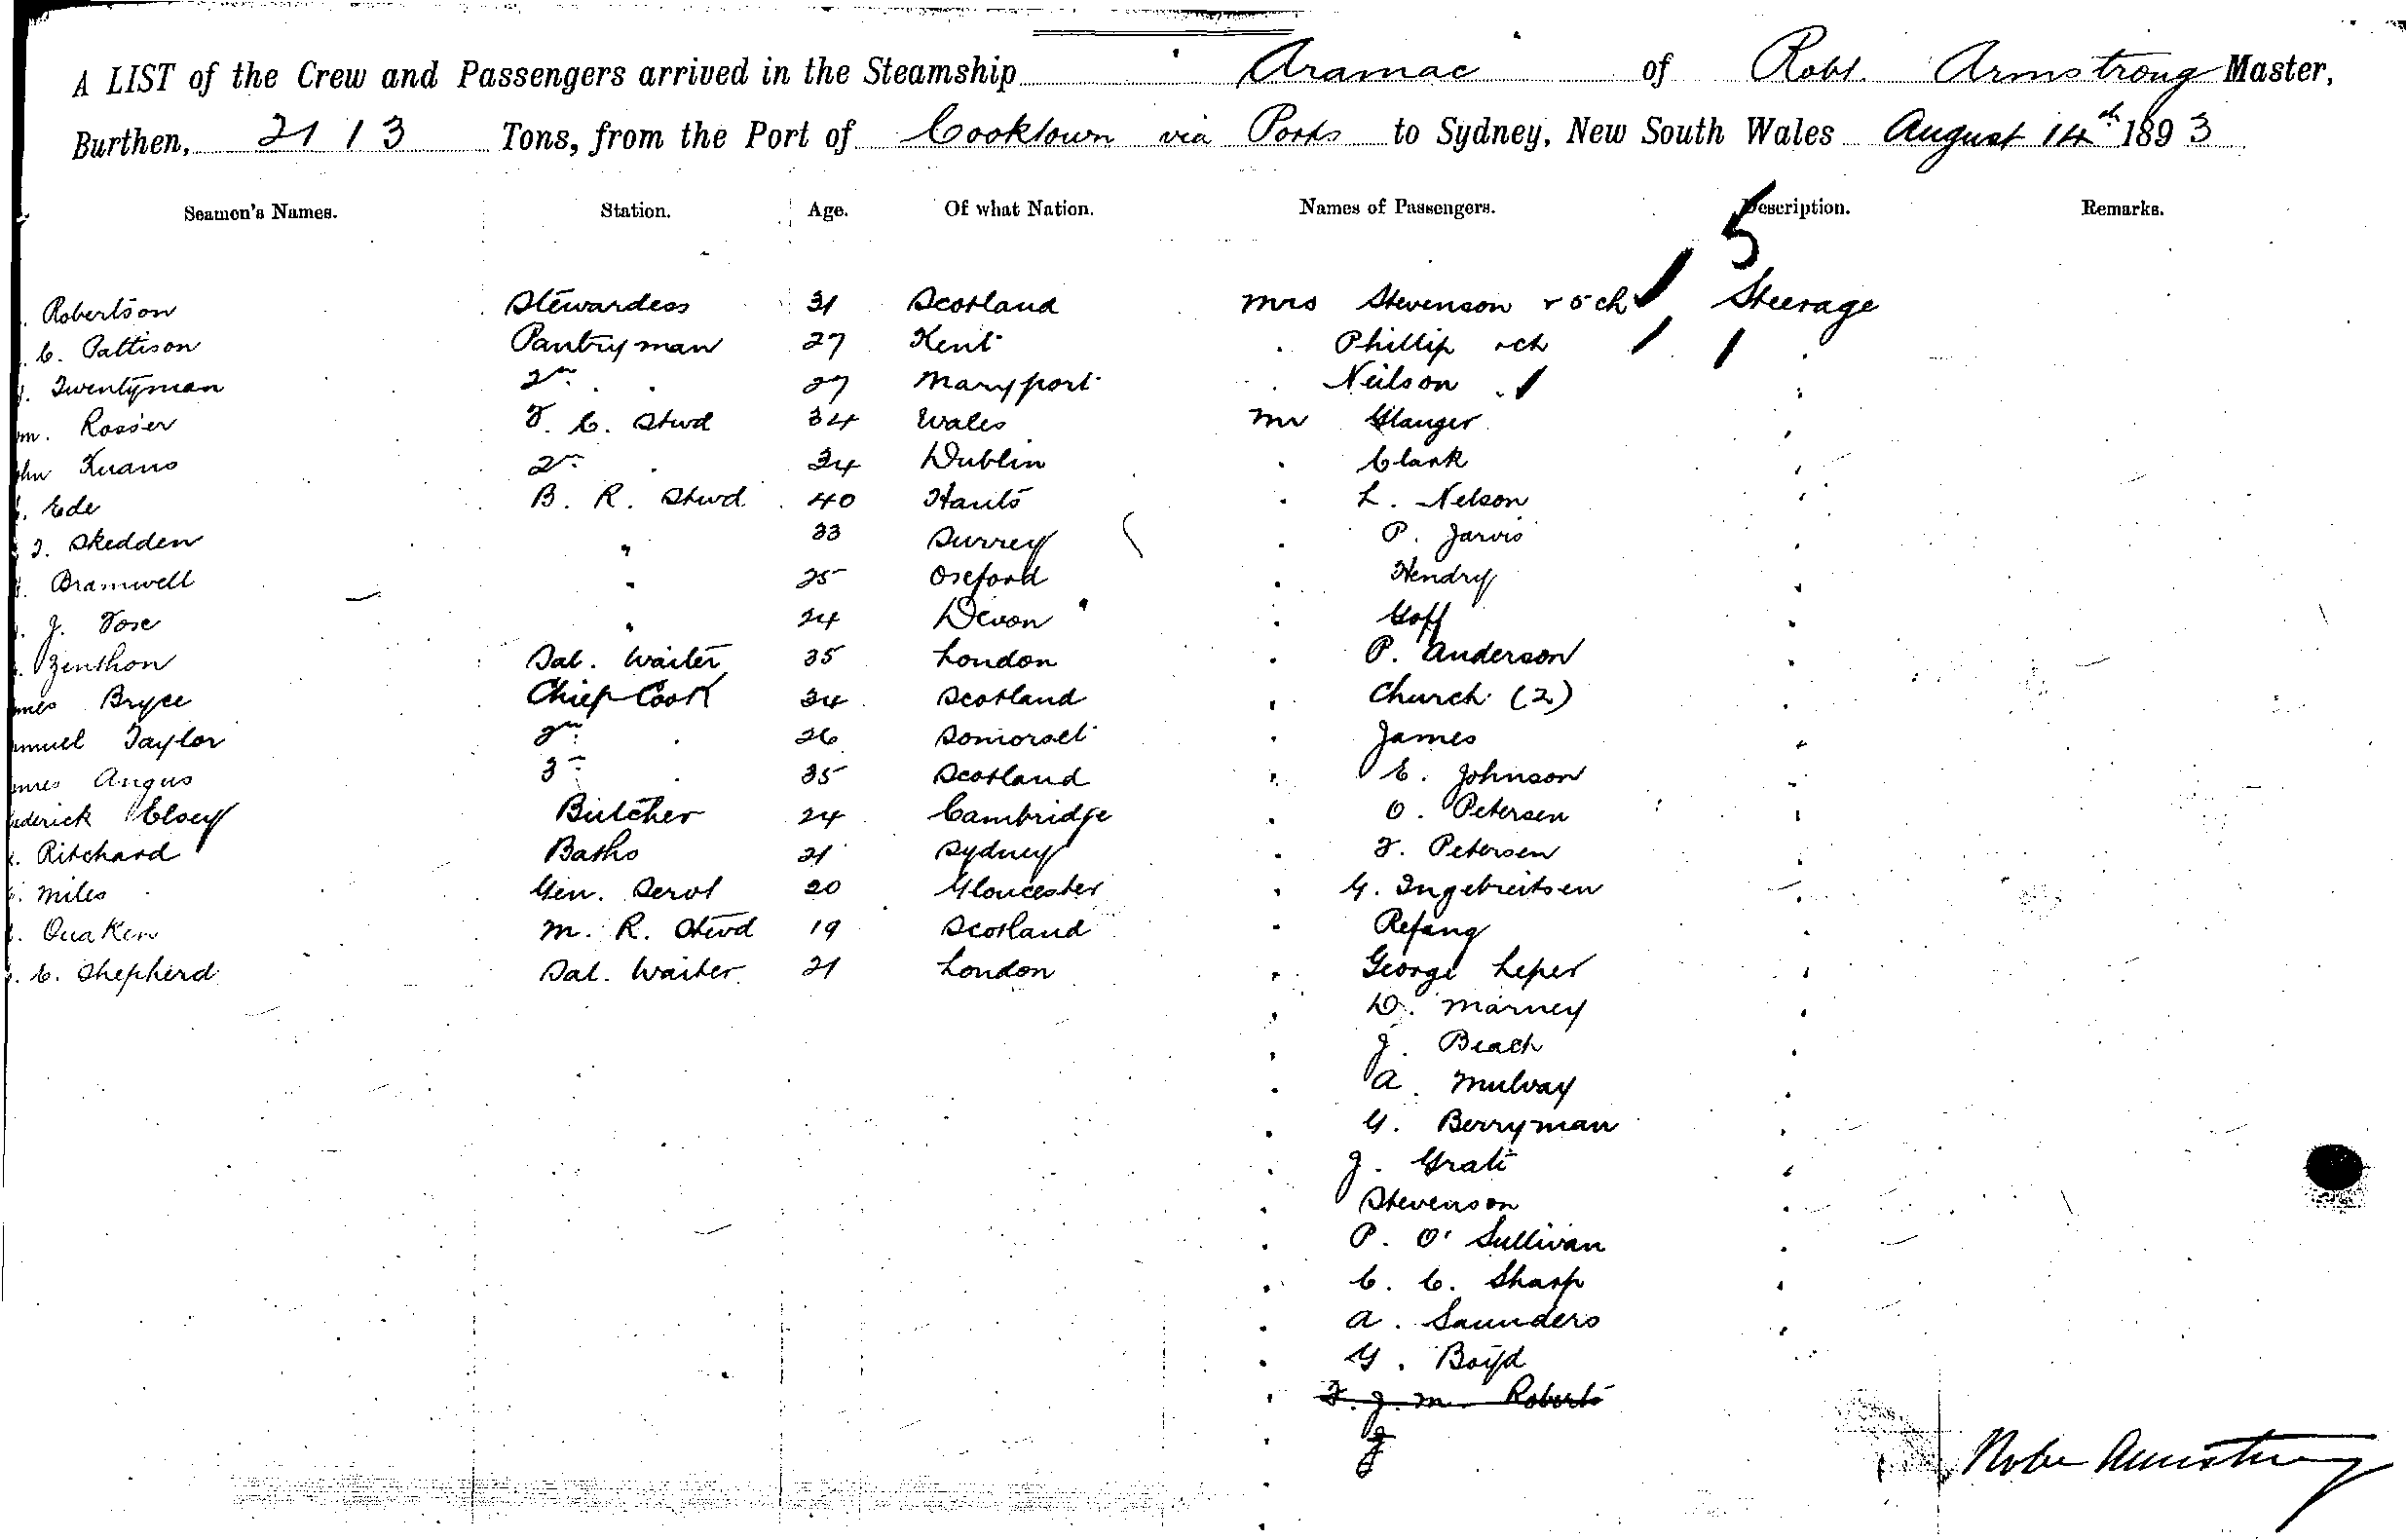 A LIST of the Crew and Passengers arrived in the Steamship Aramac of Robt. Armstrong Master,
Burthen, 2113 Tons, from the Port of Cooktown via Ports to Sydney, New South Wales August 14th 1893
Seamen's Names. Station. Age. Of what Nation. Names of Passengers. Description. Remarks.
5
Robertson Stewardess 31 Scotland Mrs Stevenson & 5 ch Steerage
C. Pattison Pantryman 27 Kent " Phillip & ch "
Twentyman 2nd " 27 Maryport " Neilson "
Rosser F. C. Stwd 34 Wales Mr Glanger "
2nd " 34 Dublin " Clark "
Ede B. R. Stwd 40 Hants " L. Nelson "
J. Skedden " 33 Surrey " P. Jarvis "
Bramwell " 25 Oxford " Hendry "
J. Tose " 24 Devon " Goff "
Zenthon Sal. Waiter 35 London " P. Anderson "
Bryce Chief Cook 34 Scotland " Church (2) "
Taylor 2nd " 26 Somerset " James "
Angus 3 " 35 Scotland " E. Johnson "
Elsey Butcher 24 Cambridge " O. Petersen "
Ritchard Baths 21 Sydney " F. Petersen "
Miles Gen. Servt 20 Gloucester " G. Ingebreitsen "
Quaken M. R. Stwd 19 Scotland " Refang "
C. Shepherd Sal. Waiter 21 London " George Leper "
" D. Marney "
" J. Beach "
" A. Mulvay "
" G. Berryman "
" J. Grati "
" Stevenson "
" P. O'Sullivan "
" C. C. Sharp "
" A. Saunders "
" G. Boyd
" F. J. M. Roberts
" J
Robt Armstrong